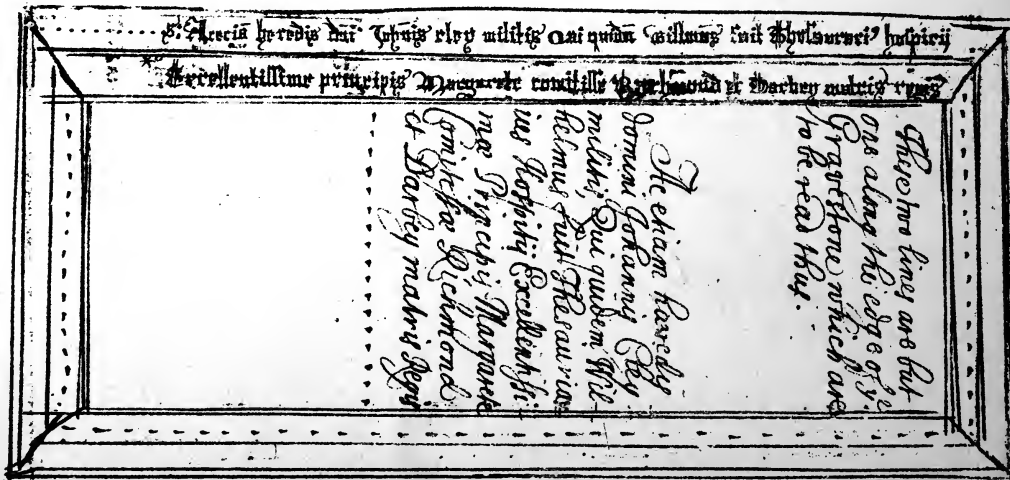 heredis dni Johnis eley militis Qui quidm Willmus fuit Thesaurari' hospicij
Excellentissime principis Margarete comitisse Richmond et Darbey matris regis
These two lines are but
one along the edge of ye
Gravestone which are
to be read thus.
Ac etiam hæredis
domini Johannis Eley
militis, Qui quidem Wil-
helmus fuit Thesaurar
ius Hospitij Excellentissi-
mæ Pricipis Margaretæ
Comitissæ Richmond
et Darbey matris Regis